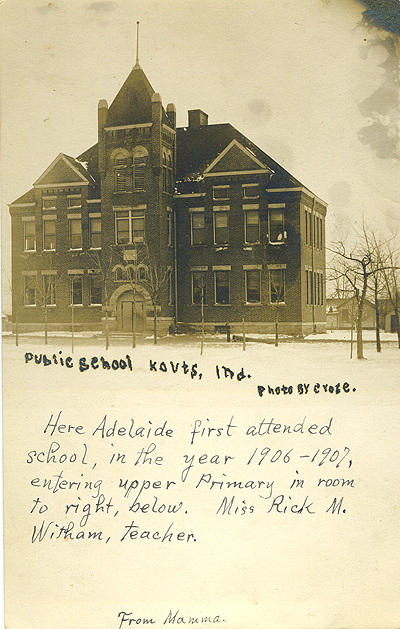 Public School Kouts, Ind.
Photo By Crose.
Here Adelaide first attended
school, in the year 1906-1907,
entering upper Primary in room
to right, below. Miss Rick M.
Witham, teacher.
From Mamma.